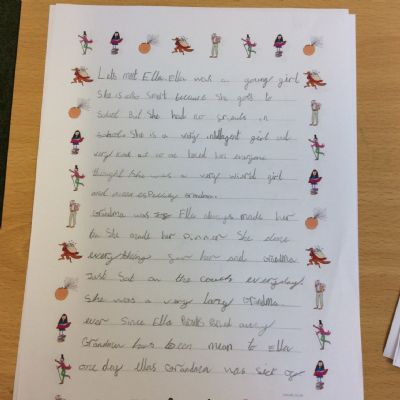 Lets met Ella. Ella was a young girl
She is also smart because she goes to
school But She had no frieds in
school. She is a very intelligent girl and
very kind but no one loved her everyone
thought she was a very wierd girl
and mean especially Grandma.
Grandma was Ella always made her
tea She made her Dinner She done
everything for her and Grandma
Just Sat on the couch everyday!
She was a very lazy Grandma
ever since Ella Parents away
Grandma has been mean to Ella
one day Ellas Grandma was sick of